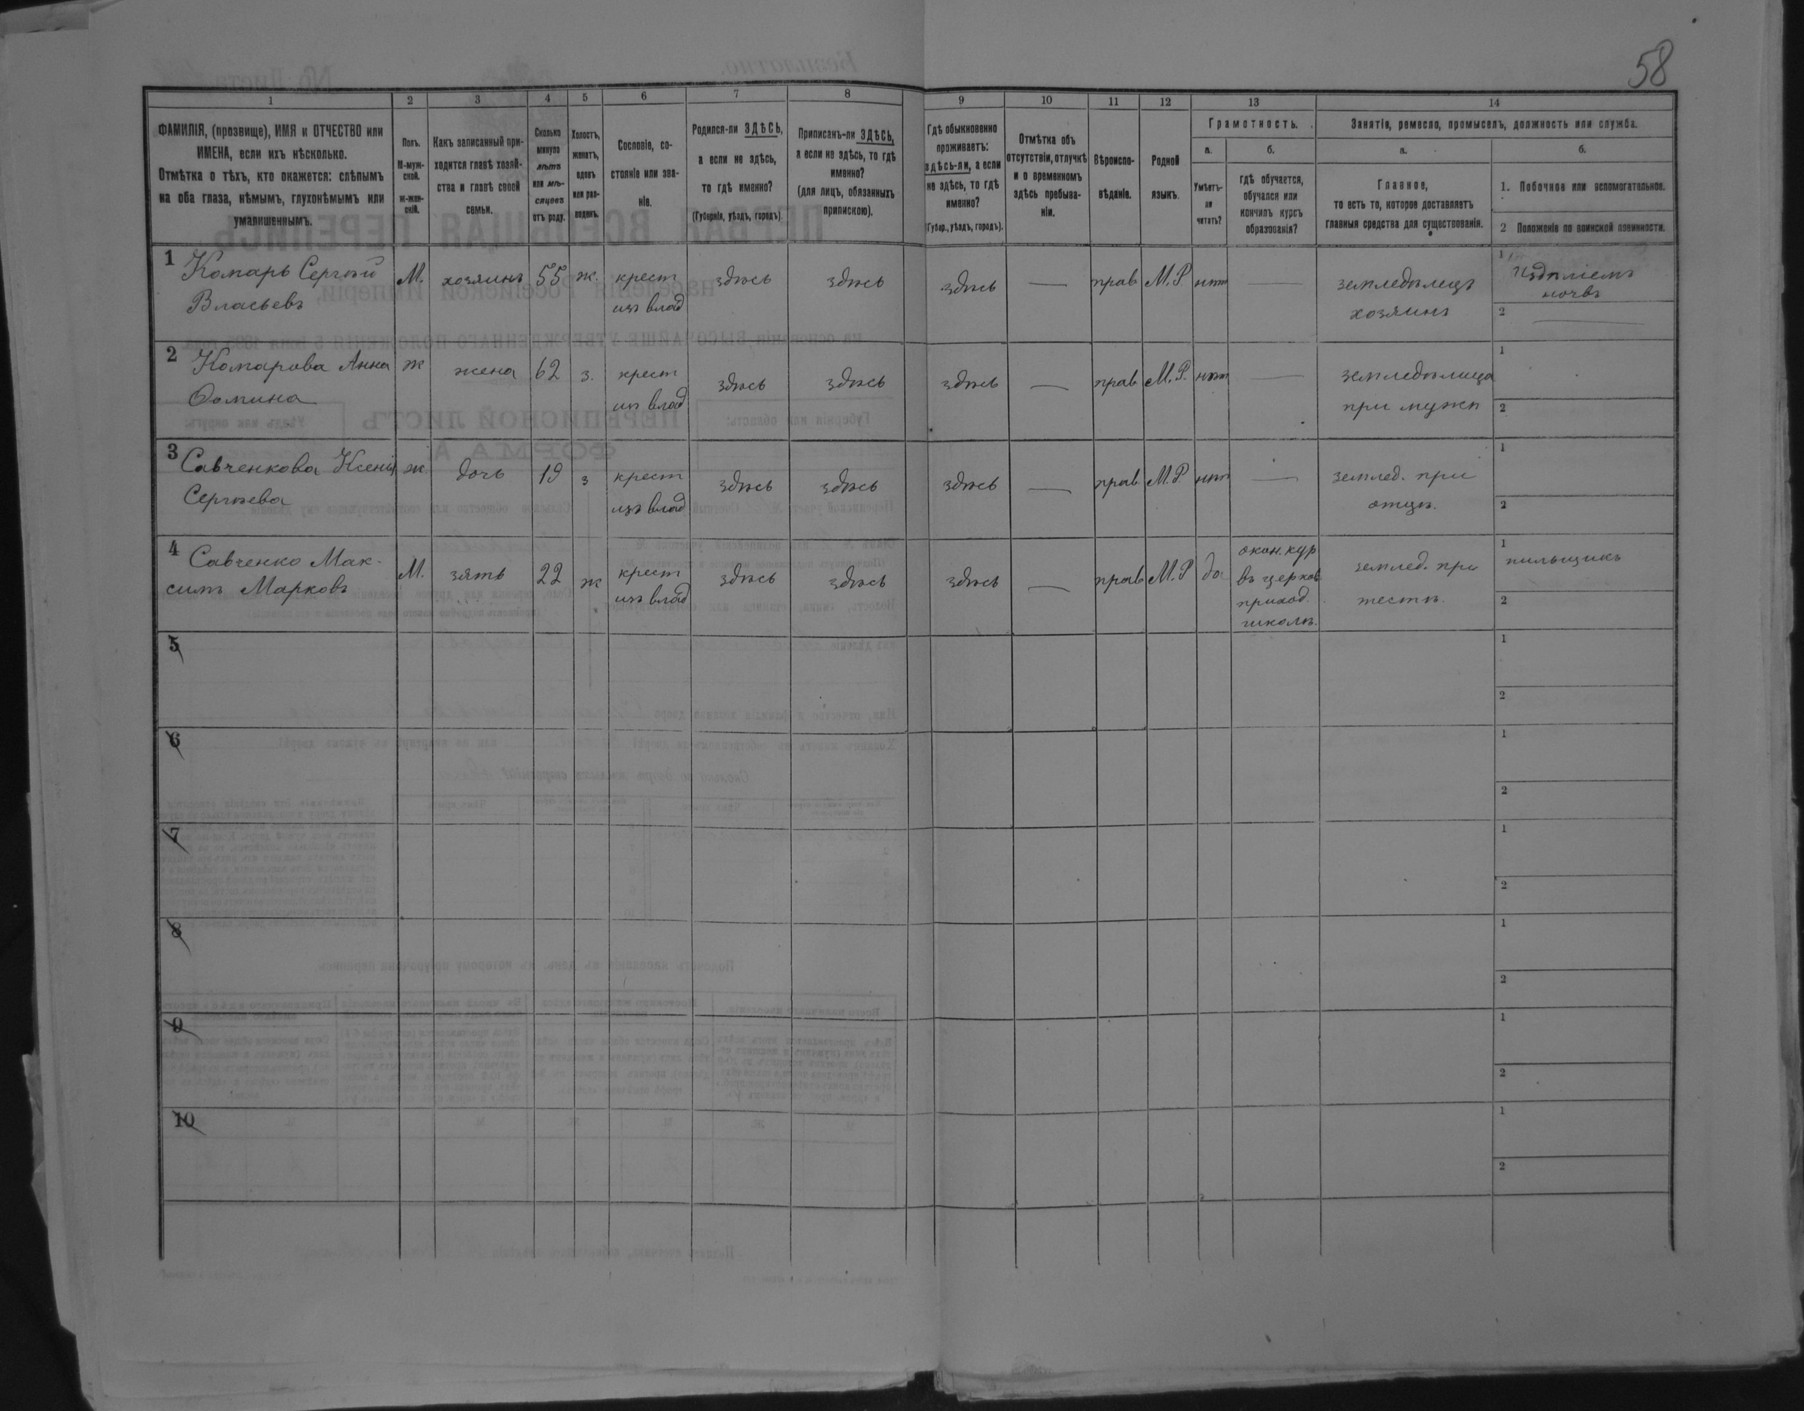 58
1 2 3 4 5 6 7 8 9 10 11 12 13 14
ФАМИЛІЯ, (прозвище), ИМЯ и ОТЧЕСТВО или
ИМЕНА, если ихъ нѣсколько.
Отмѣтка о тѣхъ, кто окажется: слѣпымъ
на оба глаза, нѣмымъ, глухонѣмымъ или
умалишеннымъ.
Полъ.
М-муж-
ской.
Ж-жен-
скій.
Какъ записанный при-
ходится главѣ хозяй-
ства и главѣ своей
семьи.
Сколько
минуло
лѣтъ
или мѣ-
сяцевъ
отъ роду.
Холостъ,
женатъ,
вдовъ
или раз-
веденъ.
Сословіе, со-
стояніе или зва-
ніе.
Родился-ли ЗДѢСЬ,
а если не здѣсь,
то гдѣ именно?
(Губернія, уѣздъ, городъ).
Приписанъ-ли ЗДѢСЬ,
а если не здѣсь, то гдѣ
именно?
(для лицъ, обязанныхъ
припискою).
Гдѣ обыкновенно
проживаетъ:
здѣсь-ли, а если
не здѣсь, то гдѣ
именно?
(Губер., уѣздъ, городъ).
Отмѣтка объ
отсутствіи, отлучкѣ
и о временномъ
здѣсь пребыва-
ніи.
Вѣроиспо-
вѣданіе.
Родной
языкъ.
Грамотность.
а.
Умѣетъ-
ли
читать?
б.
гдѣ обучается,
обучался или
кончилъ курсъ
образованія?
Занятіе, ремесло, промыселъ, должность или служба.
а.
Главное,
то есть то, которое доставляетъ
главныя средства для существованія.
б.
1. Побочное или вспомогательное.
2 Положеніе по воинской повинности.
1 Комарь Сергѣй
Власьевъ
М. хозяинъ 55 ж. крест
изъ влад
здѣсь здѣсь здѣсь — прав М.Р нѣт —
земледѣлецъ
хозяинъ
1
2 —
2 Комарова Анна
Фомина
ж жена 62 з. крест
из влад
здѣсь здѣсь здѣсь — прав М.Р. нѣт —
земледѣлица
при мужѣ
1
2
3 Савченкова Ксенія
Сергѣева
ж дочь 19 з крест
изъ влад
здѣсь здѣсь здѣсь — прав М.Р нѣт —
землед. при
отцѣ.
1
2
4 Савченко Мак-
симъ Марковъ
М. зять 22 ж крест
изъ влад
здѣсь здѣсь здѣсь — прав М.Р да
окон. кур
въ церков
приход.
школѣ.
землед. при
тестѣ.
1 пильщикъ
2
5
1
2
6
1
2
7
1
2
8
1
2
9
1
2
10
1
2